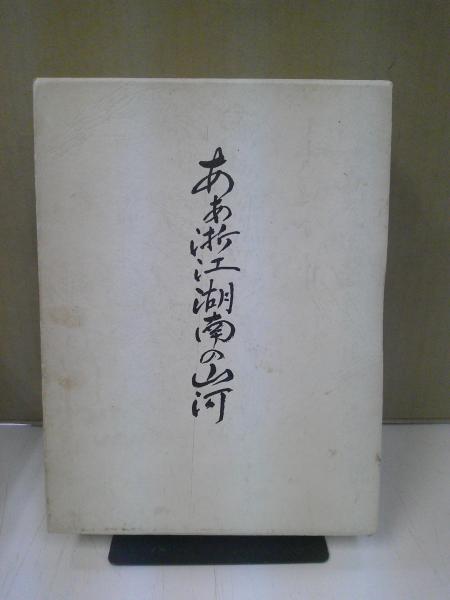 ああ浙江湖南の山河